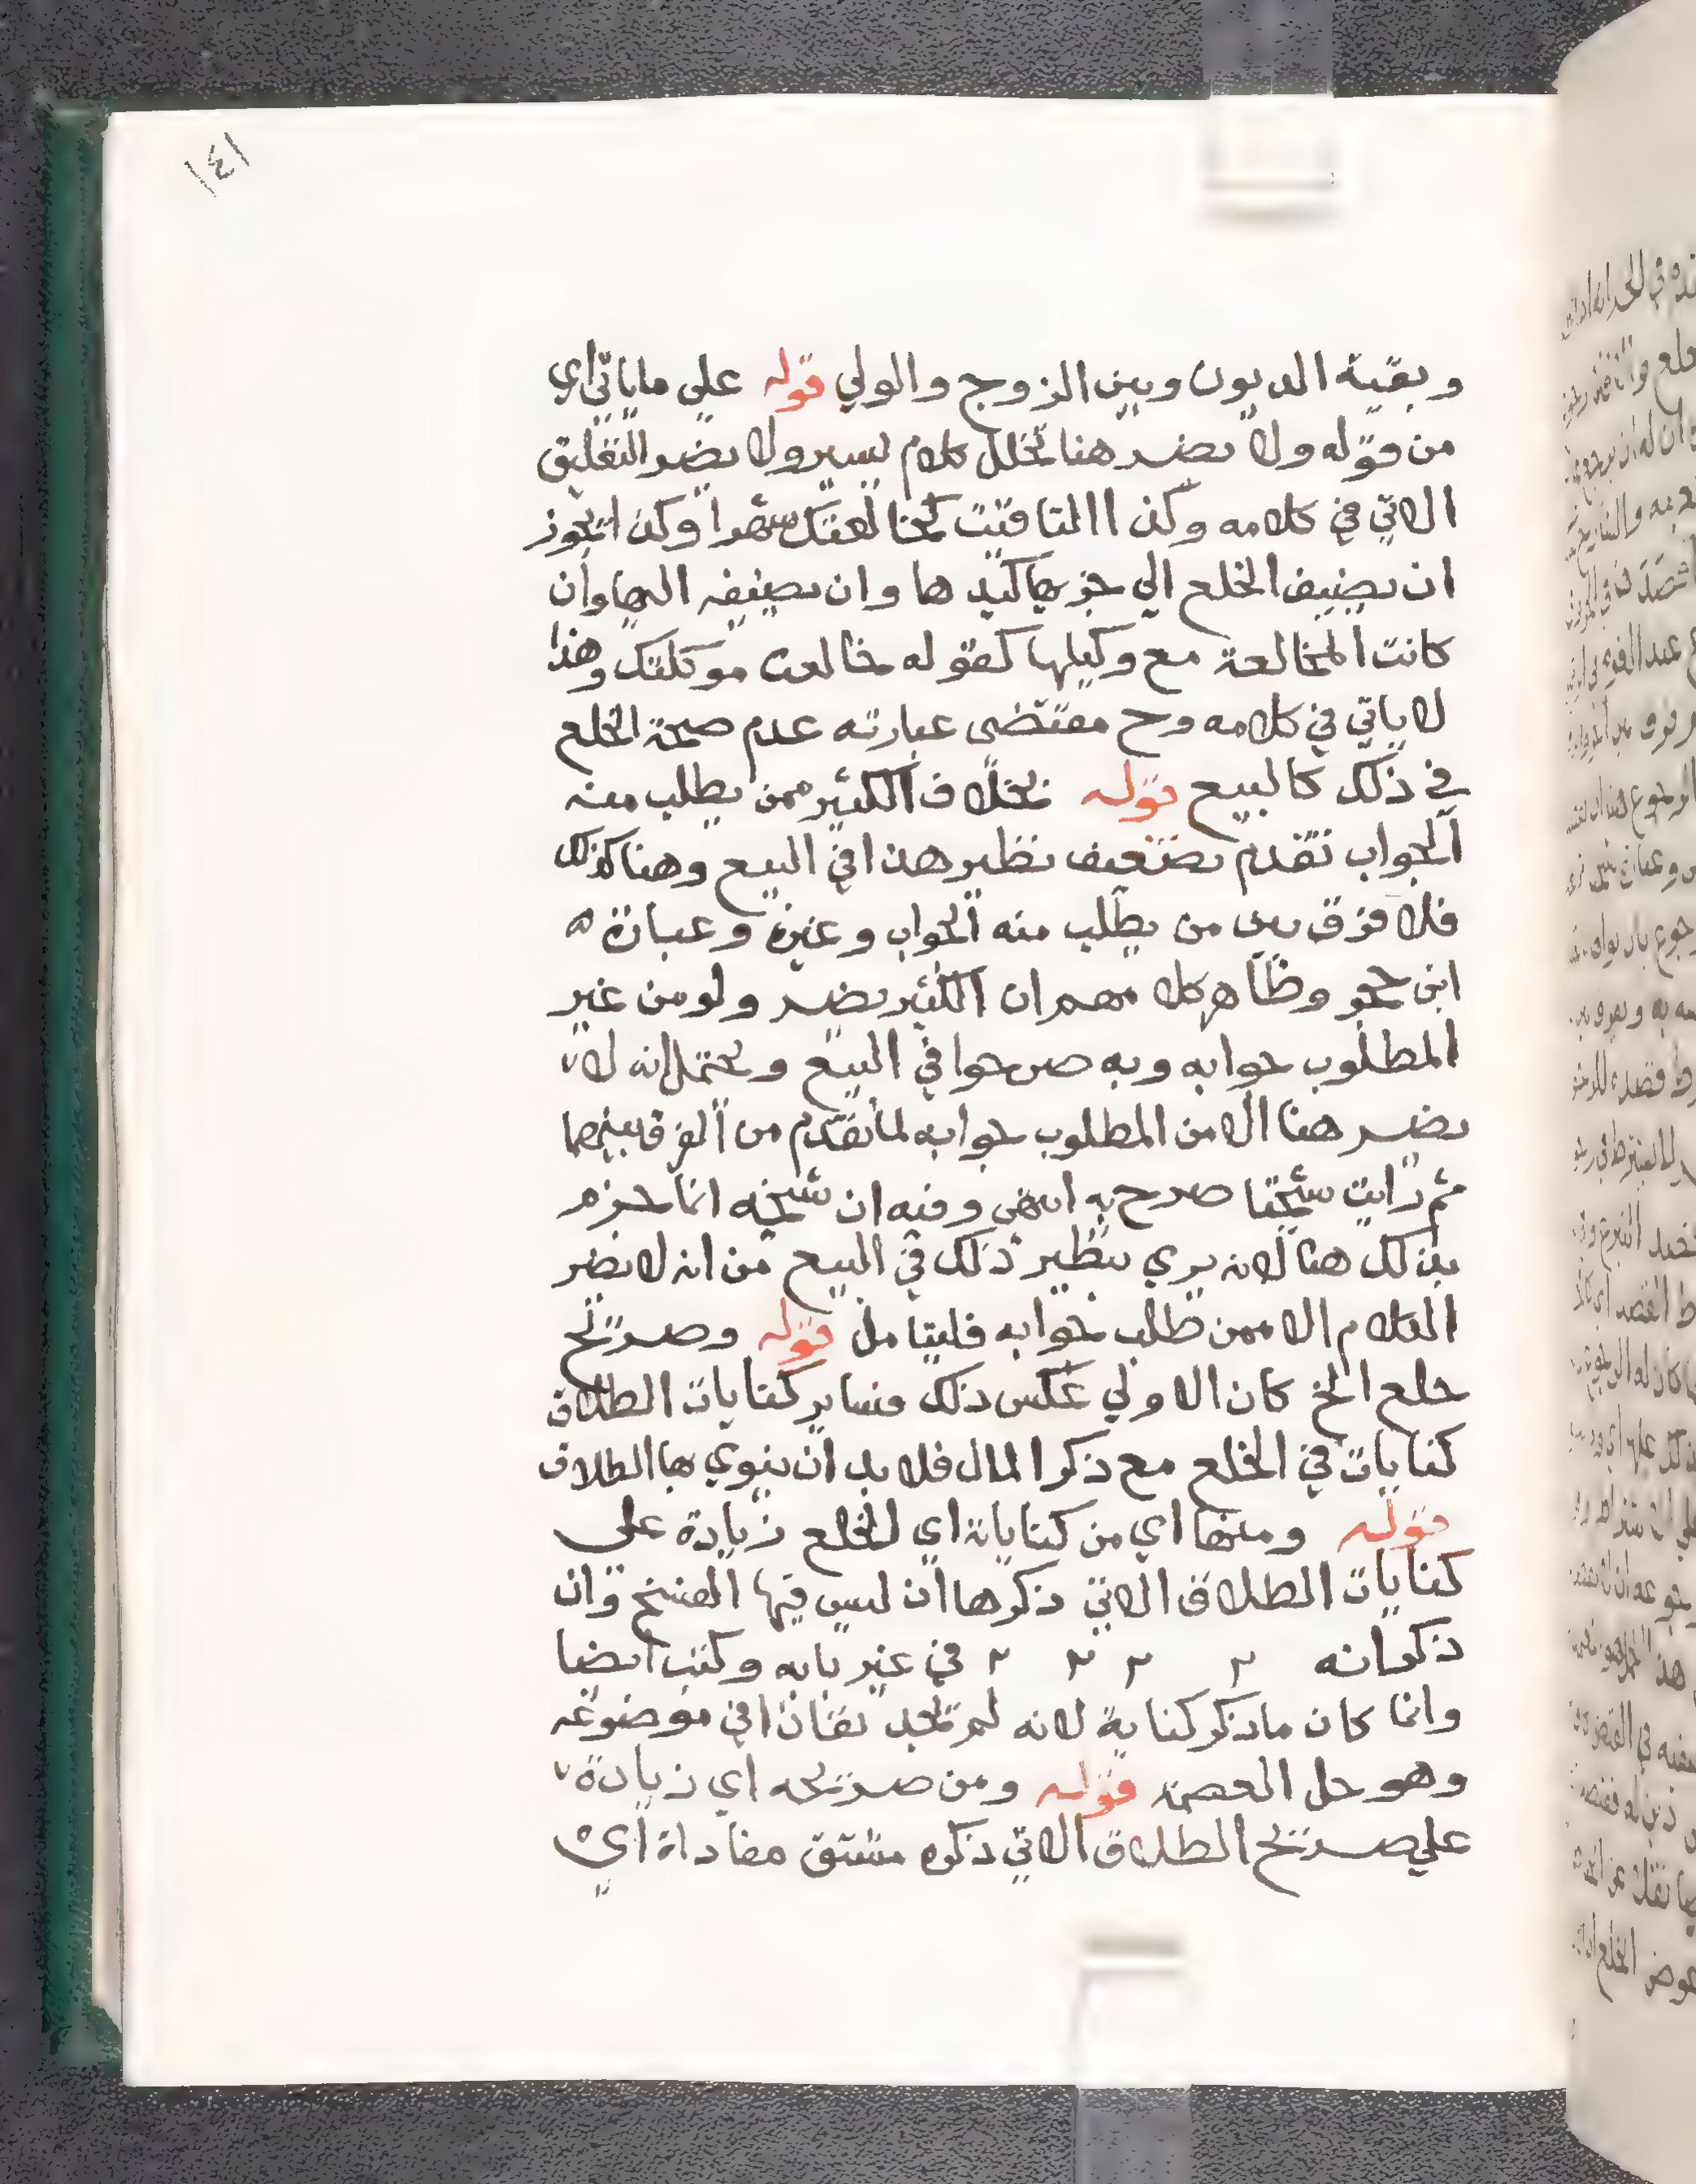 ١٤١
وبقية الديون وبين الزوج والولي قوله على ماياتي اي
من قوله ولا يضر هنا تخلل كلام يسير ولا يضر التعليق
الاتي في كلامه وكذا التاقيت كخالعتك شهرا وكذا يجوز
ان يضيف الخلع الي جزءها كيدها وان يضيفه اليها وان
كانت المخالعة مع وكيلها كقوله خالعت موكلتك وهذا
لا ياتي في كلامه وح مقتضى عبارته عدم صحة الخلع
في ذلك كالبيع قوله بخلاف الكثير ممن يطلب منه
الجواب تقدم تضعيف نظير هذا في البيع وهنا كذلك
فلا فرق بين من يطلب منه الجواب وغيره وعبارة
ابن حجر وظاهر كلامهم ان الكثير يضر ولو من غير
المطلوب جوابه وبه صرحوا في البيع ويحتمل انه لا
يضر هنا الا من المطلوب جوابه لما تقدم من الفرق بينهما
ثم رايت شيخنا صرح به انتهى وفيه ان شيخه انما جزم
بذلك هنا لانه يري نظير ذلك في البيع من انه لا يضر
الكلام الا ممن طلب جوابه فليتامل قوله وصريح
خلع الخ كان الاولي عكس ذلك فساير كنايات الطلاق
كنايات في الخلع مع ذكر المال فلا بد ان ينوي بها الطلاق
قوله ومنها اي من كناياته اي الخلع زيادة على
كنايات الطلاق الاتي ذكرها اذ ليس فيها الفسخ وان
ذكر انه في غير بابه وكتب ايضا
وانما كان ماذكر كناية لانه لم تجد نفاذا في موضوعه
وهو حل العصمة قوله ومن صريحه اي زيادة
علي صريح الطلاق الاتي ذكره مشتق مفاداة اي